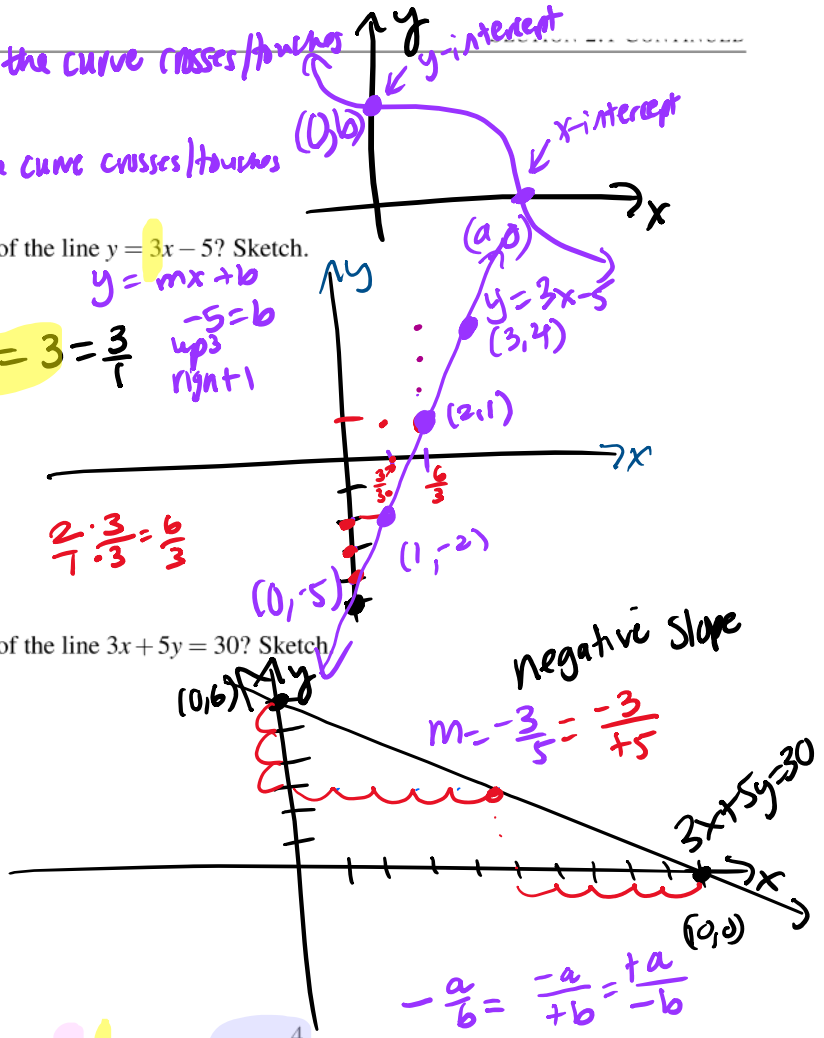 y
the curve crosses/touches
y-intercept
SECTION 2.1 CONTINUED
(0,b)
x-intercept
a curve crosses/touches
x
(a,0)
of the line y = 3x − 5? Sketch.
y
y = mx + b
-5 = b
y = 3x-5
= 3 = 3/1
up 3
right 1
(3,4)
(2,1)
x
3/3
6/3
2/1 · 3/3 = 6/3
(1,-2)
(0,-5)
of the line 3x + 5y = 30? Sketch
negative slope
(0,6)
y
m = -3/5 = -3/+5
3x+5y=30
x
(0,0)
-a/b = -a/+b = +a/-b
4